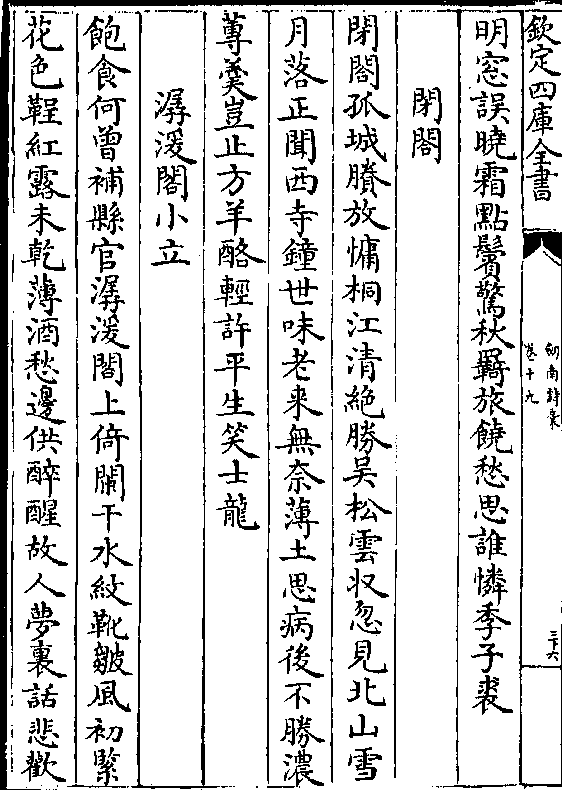 欽定四庫全書
劒南詩稾
卷十九
三十六
明窓誤曉霜點鬢驚秋羇旅饒愁思誰憐季子裘
閉閤
閉閤孤城賸放慵桐江清絶勝吴松雲收忽見北山雪
月落正聞西寺鐘世味老来無奈薄土思病後不勝濃
蓴羮豈止方羊酪輕許平生笑士龍
潺湲閣小立
飽食何曾補縣官潺湲閣上倚闌干水紋靴皺風初緊
花色鞓紅露未乾薄酒愁邊供醉醒故人夢裏話悲歡